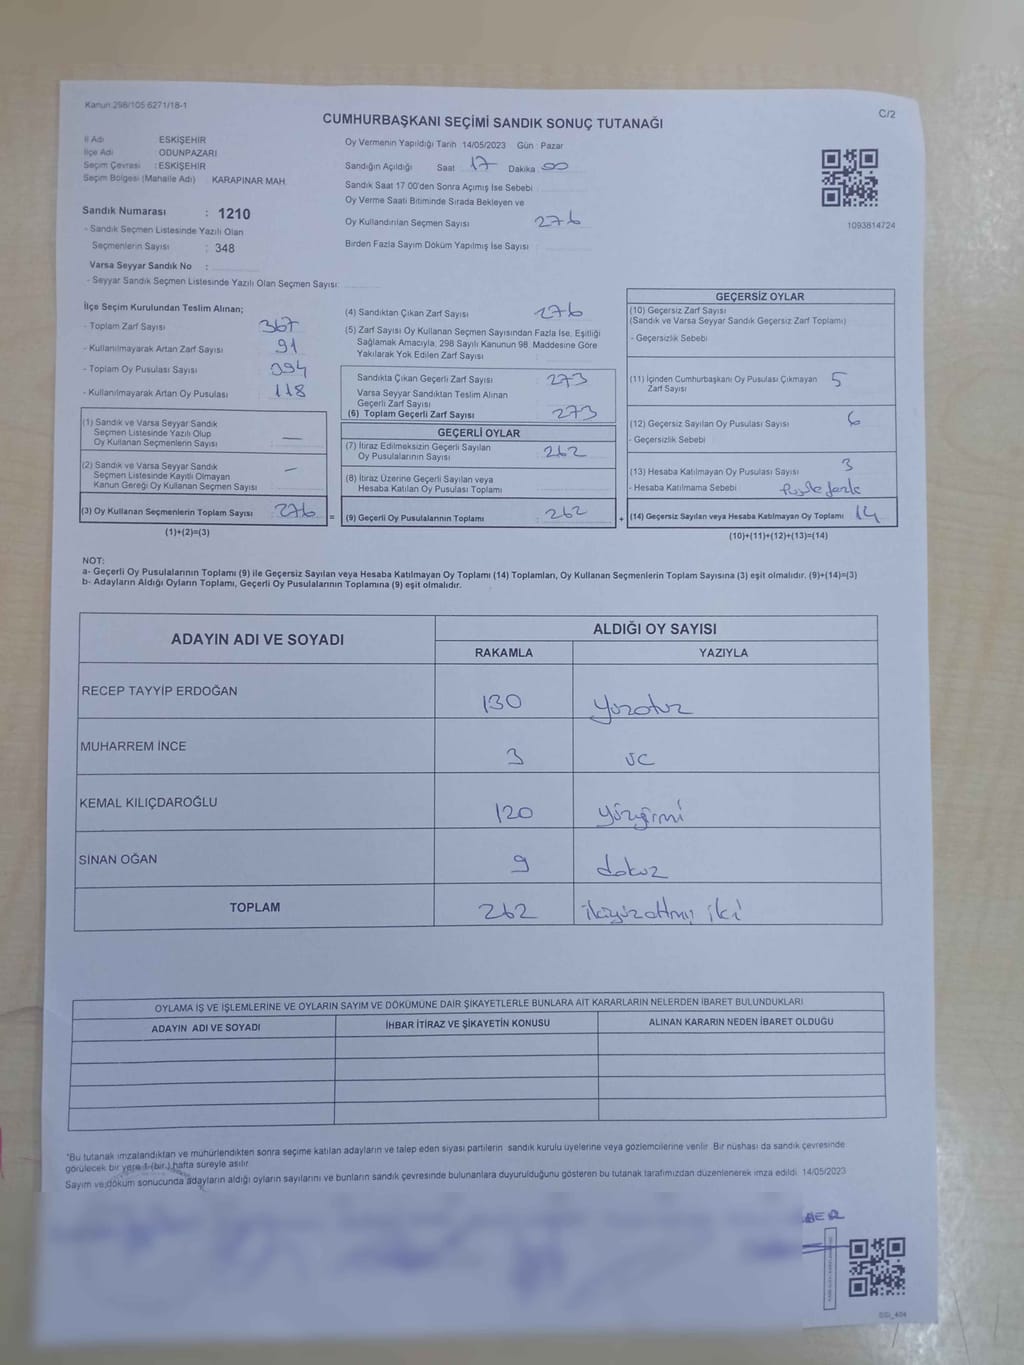 Kanun 298/105 6271/18-1
C/2
CUMHURBAŞKANI SEÇİMİ SANDIK SONUÇ TUTANAĞI
İl Adı : ESKİŞEHİR
İlçe Adı : ODUNPAZARI
Seçim Çevresi : ESKİŞEHİR
Seçim Bölgesi (Mahalle Adı) KARAPINAR MAH.
Sandık Numarası : 1210
- Sandık Seçmen Listesinde Yazılı Olan
Seçmenlerin Sayısı : 348
Varsa Seyyar Sandık No :
- Seyyar Sandık Seçmen Listesinde Yazılı Olan Seçmen Sayısı:
Oy Vermenin Yapıldığı Tarih 14/05/2023 Gün Pazar
Sandığın Açıldığı Saat 17 Dakika 00
Sandık Saat 17 00'den Sonra Açımış İse Sebebi
Oy Verme Saati Bitiminde Sırada Bekleyen ve
Oy Kullandırılan Seçmen Sayısı 276
Birden Fazla Sayım Döküm Yapılmış İse Sayısı
1093814724
İlçe Seçim Kurulundan Teslim Alınan;
- Toplam Zarf Sayısı 367
- Kullanılmayarak Artan Zarf Sayısı 91
- Toplam Oy Pusulası Sayısı 394
- Kullanılmayarak Artan Oy Pusulası 118
(1) Sandık ve Varsa Seyyar Sandık
Seçmen Listesinde Yazılı Olup
Oy Kullanan Seçmenlerin Sayısı —
(2) Sandık ve Varsa Seyyar Sandık
Seçmen Listesinde Kayıtlı Olmayan
Kanun Gereği Oy Kullanan Seçmen Sayısı —
(3) Oy Kullanan Seçmenlerin Toplam Sayısı 276 =
(1)+(2)=(3)
(4) Sandıktan Çıkan Zarf Sayısı 276
(5) Zarf Sayısı Oy Kullanan Seçmen Sayısından Fazla İse, Eşitliği
Sağlamak Amacıyla, 298 Sayılı Kanunun 98. Maddesine Göre
Yakılarak Yok Edilen Zarf Sayısı
Sandıkta Çıkan Geçerli Zarf Sayısı 273
Varsa Seyyar Sandıktan Teslim Alınan
Geçerli Zarf Sayısı
(6) Toplam Geçerli Zarf Sayısı 273
GEÇERLİ OYLAR
(7) İtiraz Edilmeksizin Geçerli Sayılan
Oy Pusulalarının Sayısı 262
(8) İtiraz Üzerine Geçerli Sayılan veya
Hesaba Katılan Oy Pusulası Toplamı
(9) Geçerli Oy Pusulalarının Toplamı : 262 +
GEÇERSİZ OYLAR
(10) Geçersiz Zarf Sayısı
(Sandık ve Varsa Seyyar Sandık Geçersiz Zarf Toplamı)
- Geçersizlik Sebebi
(11) İçinden Cumhurbaşkanı Oy Pusulası Çıkmayan 5
Zarf Sayısı
(12) Geçersiz Sayılan Oy Pusulası Sayısı 6
- Geçersizlik Sebebi
(13) Hesaba Katılmayan Oy Pusulası Sayısı 3
- Hesaba Katılmama Sebebi
(14) Geçersiz Sayılan veya Hesaba Katılmayan Oy Toplamı 14
(10)+(11)+(12)+(13)=(14)
NOT:
a- Geçerli Oy Pusulalarının Toplamı (9) ile Geçersiz Sayılan veya Hesaba Katılmayan Oy Toplamı (14) Toplamları, Oy Kullanan Seçmenlerin Toplam Sayısına (3) eşit olmalıdır. (9)+(14)=(3)
b- Adayların Aldığı Oyların Toplamı, Geçerli Oy Pusulalarının Toplamına (9) eşit olmalıdır.
ADAYIN ADI VE SOYADI ALDIĞI OY SAYISI
RAKAMLA YAZIYLA
RECEP TAYYİP ERDOĞAN 130 yüzotuz
MUHARREM İNCE 3 üç
KEMAL KILIÇDAROĞLU 120 yüzyirmi
SİNAN OĞAN 9 dokuz
TOPLAM 262 ikiyüzaltmış iki
OYLAMA İŞ VE İŞLEMLERİNE VE OYLARIN SAYIM VE DÖKÜMÜNE DAİR ŞİKAYETLERLE BUNLARA AİT KARARLARIN NELERDEN İBARET BULUNDUKLARI
ADAYIN ADI VE SOYADI İHBAR İTİRAZ VE ŞİKAYETİN KONUSU ALINAN KARARIN NEDEN İBARET OLDUĞU
*Bu tutanak imzalandıktan ve mühürlendikten sonra seçime katılan adayların ve talep eden siyasi partilerin sandık kurulu üyelerine veya gözlemcilerine verilir. Bir nüshası da sandık çevresinde
görülecek bir yere 1 (bir) hafta süreyle asılır
Sayım ve döküm sonucunda adayların aldığı oyların sayılarını ve bunların sandık çevresinde bulunanlara duyurulduğunu gösteren bu tutanak tarafımızdan düzenlenerek imza edildi. 14/05/2023